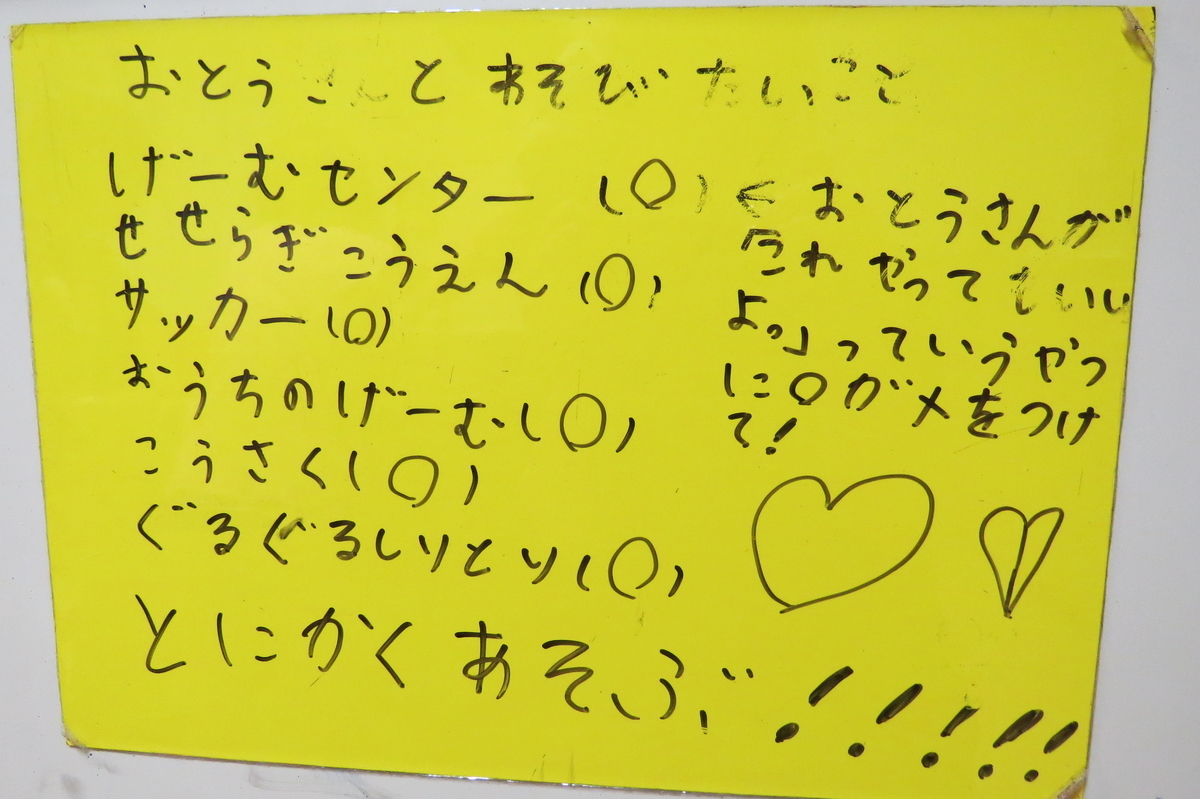 おとうさんと あそびたいこと
げーむセンター (〇)
せせらぎこうえん (〇)
サッカー(〇)
おうちのげーむ(〇)
こうさく(〇)
ぐるぐるしりとり(〇)
とにかくあそぶ!!!!!
←おとうさんが
「これやってもいい
よ。」っていうやつ
に〇がメをつけ
て!